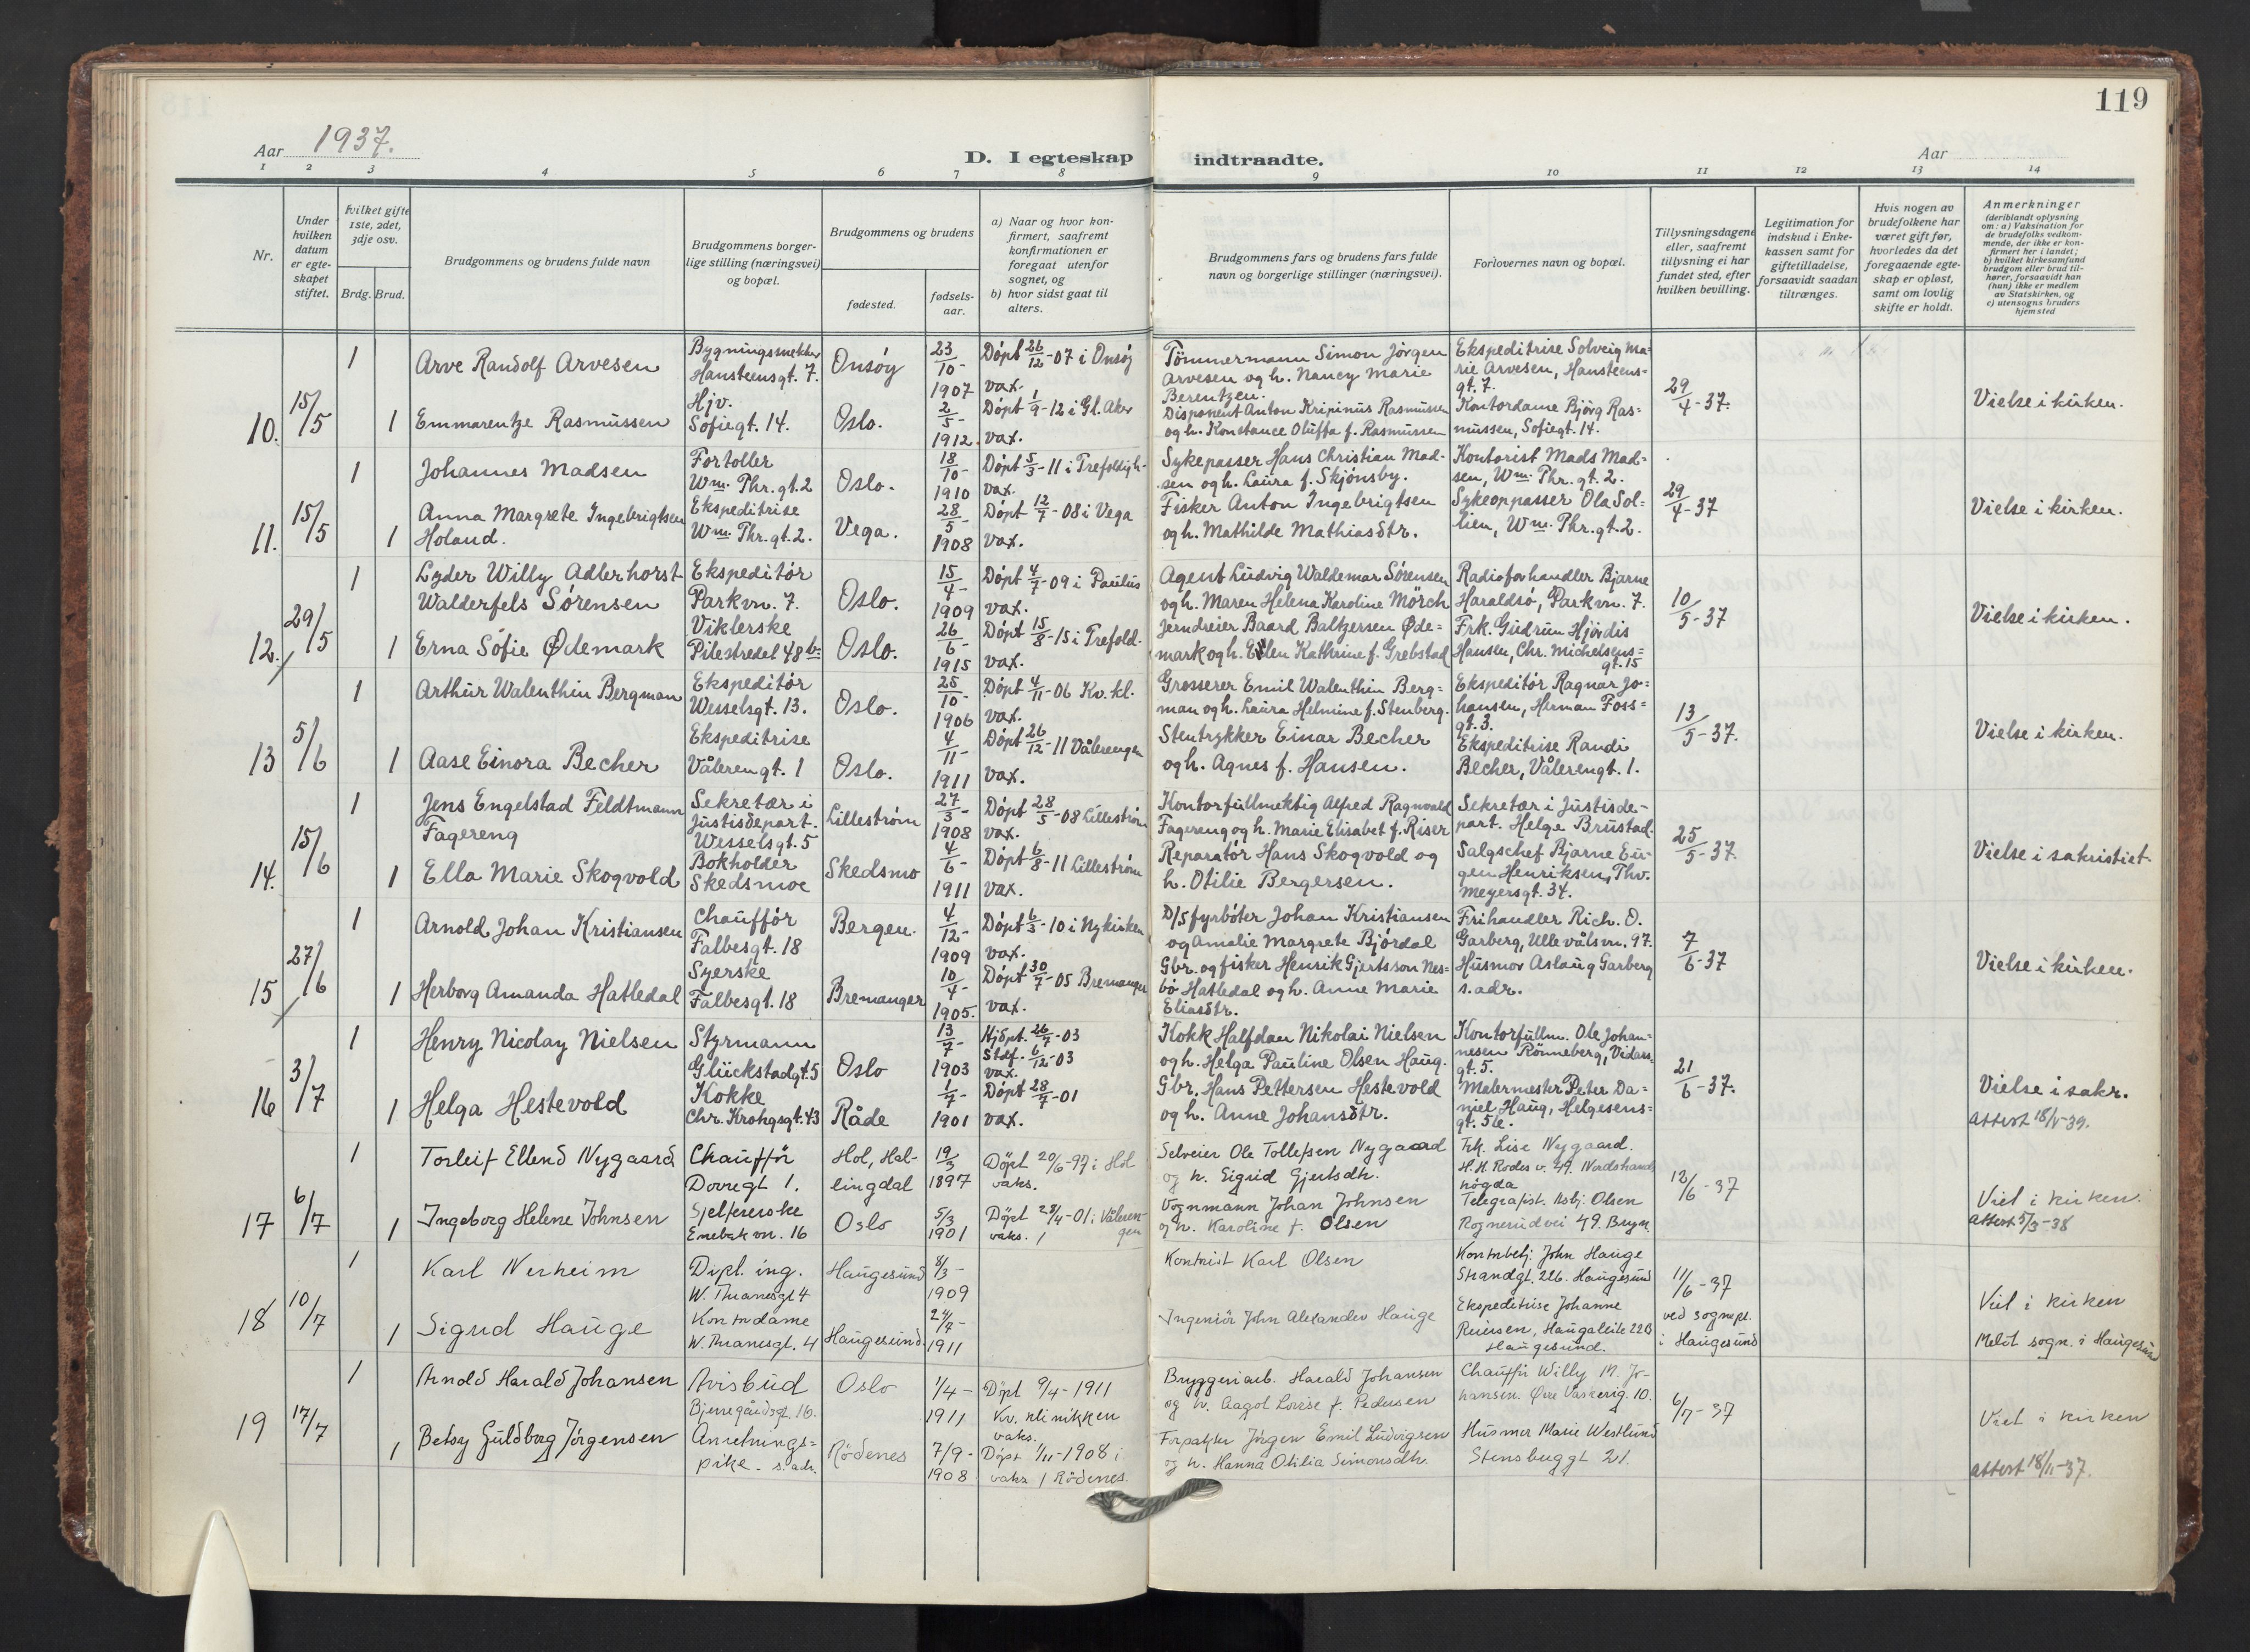 119
Aar 1937.
D. I egteskap indtraadte.
Aar
1 2 3 4 5 6 7 8 9 10 11 12 13 14
Nr.
Under hvilken datum er egteskapet stiftet.
Hvilket gifte 1ste, 2det, 3dje osv.
Brdg. Brud.
Brudgommens og brudens fulde navn
Brudgommens borger-
lige stilling (næringsvei)
og bopæl.
Brudgommens og brudens
fødested.
fødsels-
aar.
a) Naar og hvor kon-
firmert, saafremt
konfirmationen er
foregaat utenfor
sognet, og
b) hvor sidst gaat til
alters.
Brudgommens fars og brudens fars fulde
navn og borgerlige stillinger (næringsvei).
Forlovernes navn og bopæl.
Tillysningsdagene
eller, saafremt
tillysning ei har
fundet sted, efter
hvilken bevilling.
Legitimation for
indskud i Enke-
kassen samt for
giftetilladelse,
forsaavidt saadan
tiltrænges.
Hvis nogen av
brudefolkene har
været gift før,
hvorledes da det
foregaaende egte-
skap er opløst,
samt om lovlig
skifte er holdt.
Anmerkninger
(deriblandt oplysning
om: a) Vaksination for
de brudefolks vedkom-
mende, der ikke er kon-
firmert her i landet;
b) hvilket kirkesamfund
brudgom eller brud til-
hører, forsaavidt han
(hun) ikke er medlem
av Statskirken, og
c) utensogns bruders
hjemsted
10. 15/5
1 Arve Randolf Arvesen
Bygningssnekker
Hansteensgt. 7.
Onsøy
23/10-1907
Döpt 26/12-07 i Onsøy
vax.
Tömmermann Simon Jörgen
Arvesen og h. Nancy Marie
Berentzen.
Ekspeditrise Solveig Ma=
rie Arvesen, Hansteens=
gt. 7.
29/4-37.
Vielse i kirken.
1 Emmarentze Rasmussen
Hjv.
Sofiegt. 14.
Oslo.
2/5-1912.
Döpt 1/9-12 i Gl. Aker
vax.
Disponent Anton Kripinus Rasmussen
og h. Konstance Oluffa f. Rasmussen
Kontordame Bjørg Ras=
mussen, Sofiegt. 14.
11. 15/5
1 Johannes Madsen
Fortoller
Wm. Thr. gt. 2
Oslo.
18/10-1910
Döpt 5/3-11 i Trefoldigh.
vax.
Sykepasser Hans Christian Mad-
sen og h. Laura f. Skjönsby.
Kontorist Mads Mad=
sen, Wm. Thr. gt. 2.
29/4-37
Vielse i kirken.
1 Anna Margrete Ingebrigtsen
Holand.
Ekspeditrise
Wm. Thr. gt. 2.
Vega.
28/5-1908
Döpt 12/7-08 i Vega
vax.
Fisker Anton Ingebrigtsen
og h. Mathilde Mathiasdtr.
Sykeoppasser Ola Sol=
lien, Wm. Thr. gt. 2.
12. 29/5
1 Lyder Willy Adlerhorst
Walderfels Sörensen
Ekspeditör
Parkvn. 7.
Oslo.
15/4-1909
Döpt 4/7-09 i Paulus
vax.
Agent Ludvig Waldemar Sörensen
og h. Maren Helena Karoline Mörch
Radioforhandler Bjarne
Haraldsö, Parkvn. 7.
10/5-37
Vielse i kirken.
1 Erna Sófie Ødemark
Viklerske
Pilestredet 48 b=
Oslo.
26/6-1915
Döpt 15/8-15 i Trefold.
vax.
Jerndreier Baard Baltzersen Øde=
mark og h. Ellen Kathrine f. Grebstad
Frk. Gudrun Hjördis
Hansen, Chr. Michelsens=
gt. 15
13 5/6
1 Arthur Walenthin Bergman
Ekspeditör
Wesselsgt. 13.
Oslo.
25/10-1906
Döpt 4/11-06 Kv. kl.
vax.
Grosserer Emil Walenthin Berg=
man og h. Laura Helmine f. Stenberg.
Ekspeditör Ragnar Jo=
hansen, Herman Foss=
gt. 3.
13/5-37.
Vielse i kirken.
1 Aase Einora Becher
Ekspeditrise
Vålerengt. 1
Oslo.
4/11-1911
Döpt 26/12-11 Vålerengen
vax.
Stentrykker Einar Becher
og h. Agnes f. Hansen.
Ekspeditrise Randi
Becher, Vålerengt. 1.
14. 15/6
1 Jens Engelstad Feldtmann
Fagereng
Sekretær i
Justisdepart.
Wesselsgt. 5
Lilleström
27/3-1908
Döpt 28/5-08 Lilleström
vax.
Kontorfullmektig Alfred Ragnvald
Fagereng og h. Marie Elisabet f. Riser
Sekretær i Justisde-
part. Helge Brustad.
25/5-37.
Vielse i sakristiet.
1 Ella Marie Skogvold
Bokholder
Skedsmoe
Skedsmo
4/6-1911
Döpt 6/8-11 Lilleström
vax.
Reparatör Hans Skogvold og
h. Otilie Bergersen.
Salgschef Bjarne Eu-
gen Henriksen, Thv.
Meyersgt. 34.
15 27/6
1 Arnold Johan Kristiansen
Chaufför
Falbesgt. 18
Bergen.
4/12-1909
Döpt 6/3-10 i Nykirken
vax.
D/S fyrböter Johan Kristiansen
og Amalie Margrete Björdal
Frihandler Rich. O.
Garberg, Ullevålsvn. 97.
7/6-37
Vielse i kirken.
1 Herborg Amanda Hatledal
Syerske
Falbesgt. 18
Bremanger
10/4-1905.
Döpt 30/7-05 Bremanger
vax.
Gbr. og fisker Henrik Gjertsson Nes=
bö Hatledal og h. Anne Marie
Eliasdtr.
Husmor Aslaug Garberg
s. adr.
16 3/7
1 Henry Nicolay Nielsen
Styrmann
Glückstadgt. 5
Oslo
13/7-1903
Hjdpt. 26/7-03
Stdf. 6/12-03
vax.
Kokk Halfdan Nikolai Nielsen
og h. Helga Pauline Olsen Haug.
Kontorfullm. Ole Johan=
nesen Rönneberg, Vidars=
gt. 5.
21/6-37.
Vielse i sakr.
1 Helga Hestevold
Kokke
Chr. Krohgsgt. 43
Råde
1/7-1901
Döpt 28/7-01
vax.
Gbr. Hans Pettersen Hestevold
og h. Anne Johansdtr.
Malermester Peter Da=
niel Haug, Helgesens=
gt. 56.
Attest 18/4-39.
17 6/7
1 Torleif Ellend Nygaard
Chauffør
Dovregt 1.
Hol, Hal-
lingdal
19/3 1897
Döpt 20/6-97 i Hol
vaks.
Selveier Ole Tollefsen Nygaard
og h. Sigrid Gjertsdh.
Frk. Lise Nygaard.
H. H. Rodes v. 49. Nordstrand
högda
12/6-37
Viet i kirken.
Attest 5/3-38
1 Ingeborg Helene Johnsen
Enebakvn. 16
Oslo
5/3 1901
Döpt 28/4-01 i Våleren-
gen
vaks.
Vognmann Johan Johnsen
og h. Karoline f. Olsen
Telegrafist. Asbj. Olsen
Rognerudvei 49. Bryn
18 10/7
1 Karl Nerheim
Dipl. ing.
W. Thranesgt 4
Haugesund
8/3-1909
Kontorist Karl Olsen
Kontorbetj. John Hauge
Strandgt. 226. Haugesund
11/6-37
ved sognepr.
i Haugesund
Viet i kirken
Meldt sogn. i Haugesund
1 Sigrid Hauge
Kontordame
W. Thranesgt. 4
Haugesund.
1911
Ingeniör John Alexander Hauge
Ekspeditrise Johanne
Reiersen, Haugaleite 22B
Haugesund.
19 17/7
1 Arnold Harald Johansen
Avisbud
Bjerregårdsgt. 16.
Oslo
1/4-1911
Döpt 9/4-1911
Kv. klinikken
vaks.
Bryggeriarb. Harald Johansen
og h. Aagot Lovise f. Pedersen
Chauffør Willy M. Jo-
hansen. Øvre Vaskerig. 10.
6/7-37
Viet i kirken
1 Betsy Guldborg Jörgensen
Anretnings=
pike - s. adr.
Rödenes
7/9-1908
Döpt 1/11-1908 i
vaks / Rödenes.
Forpakter Jörgen Emil Ludvigsen
og h. Hanna Otilia Simonsdh.
Husmor Marie Westlund
Stensberggt 21.
Attest 18/11-37.